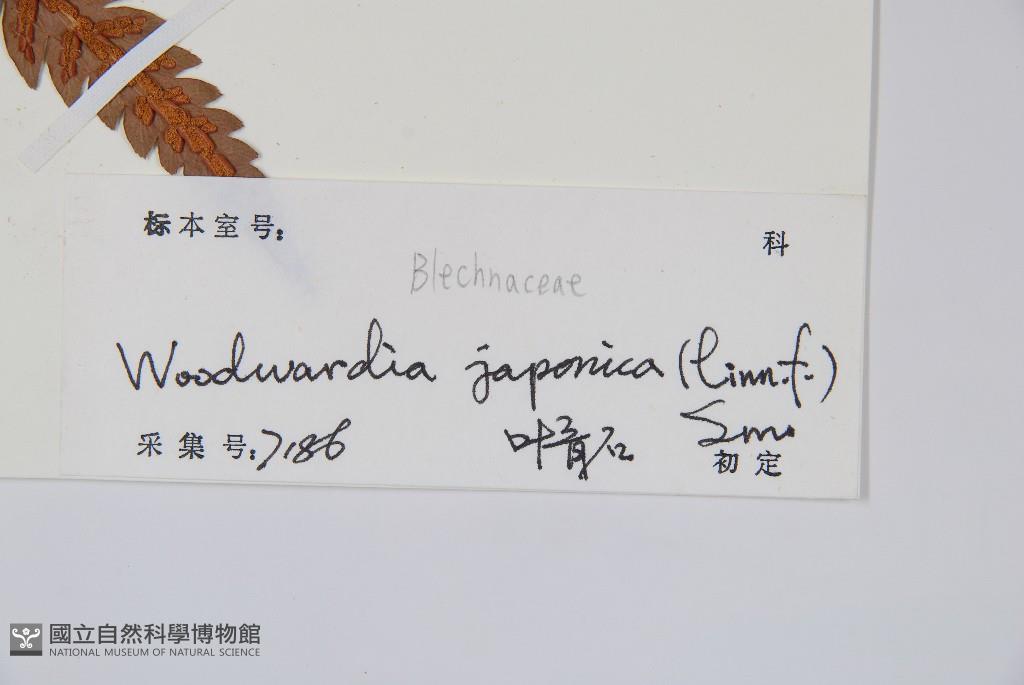 标本室号: 科
Blechnaceae
Woodwardia japonica (Linn.f.)
Sm.
采集号: 7186 叶青石 初定
國立自然科學博物館
NATIONAL MUSEUM OF NATURAL SCIENCE